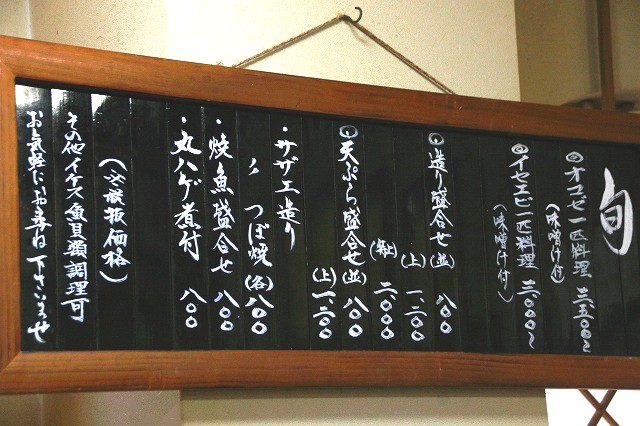 旬
◎オコゼ一匹料理 三、五〇〇〜
(味噌汁付)
◎イセエビ一匹料理 三、〇〇〇〜
(味噌汁付)
◎造り盛合せ(並) 八〇〇
(上) 一、二〇〇
二、〇〇〇
◎天ぷら盛合せ(並) 八〇〇
(上) 一、二〇〇
・サザエ造り
〃 つぼ焼(各)八〇〇
・焼魚盛合せ 八〇〇
・丸ハゲ煮付 八〇〇
(全て税抜価格)
その他イケス魚貝類調理可
お気軽にお尋ね下さいませ